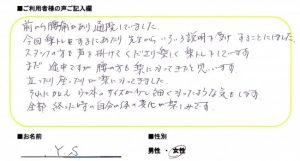 ■ご利用者様の声ご記入欄
前から腰痛があり通院していました。
今回筋トレをするにあたり先生からいろいろ説明を受けすることにしました。
スタッフの方も声を掛けてくださり楽しく筋トレしています
まだ途中ですが腰の方も楽になってきたと思います。
立ったり座ったりが楽になってきました。
それにひざ の サイズが少し細くなったような気もします
全部終った時の自分の体の変化が楽しみです。
■お名前
■性別
Y.S
男性・女性